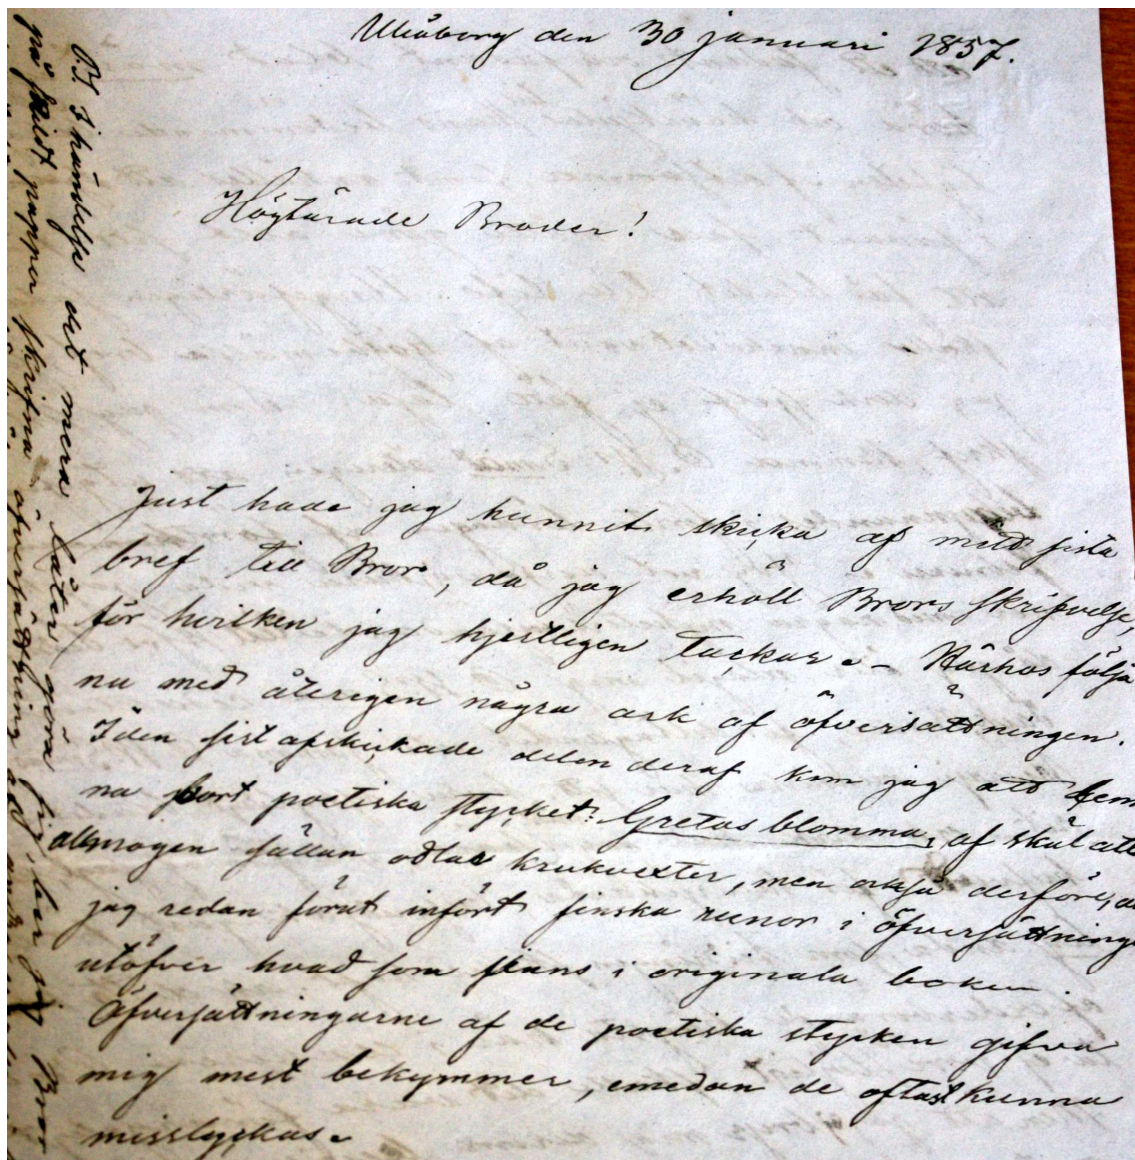 Uleåborg den 30 januari 1857.
Högtärade Broder!
Just hade jag hunnit skicka af mitt sista
bref till Bror, då jag erhöll Brors skrifvelse,
för hvilken jag hjertligen tackar. – Härhos följa
nu med återigen några ark af öfversättningen.
I den sist afskickade delen deraf kom jag att lem
na bort poetiska stycket: Gretas blomma, af skäl att
allmogen sällan odlar krukvexter, men också derföre, att
jag redan förut infört finska runor i öfversättninge
utöfver hvad som fans i originala boken.
Öfversättningarne af de poetiska stycken gifva
mig mest bekymmer, emedan de oftast kunna
misslyckas.
P.S. I händelse det mera låter göra sig, ber jag Bror
på skildt papper skrifna öfversättning